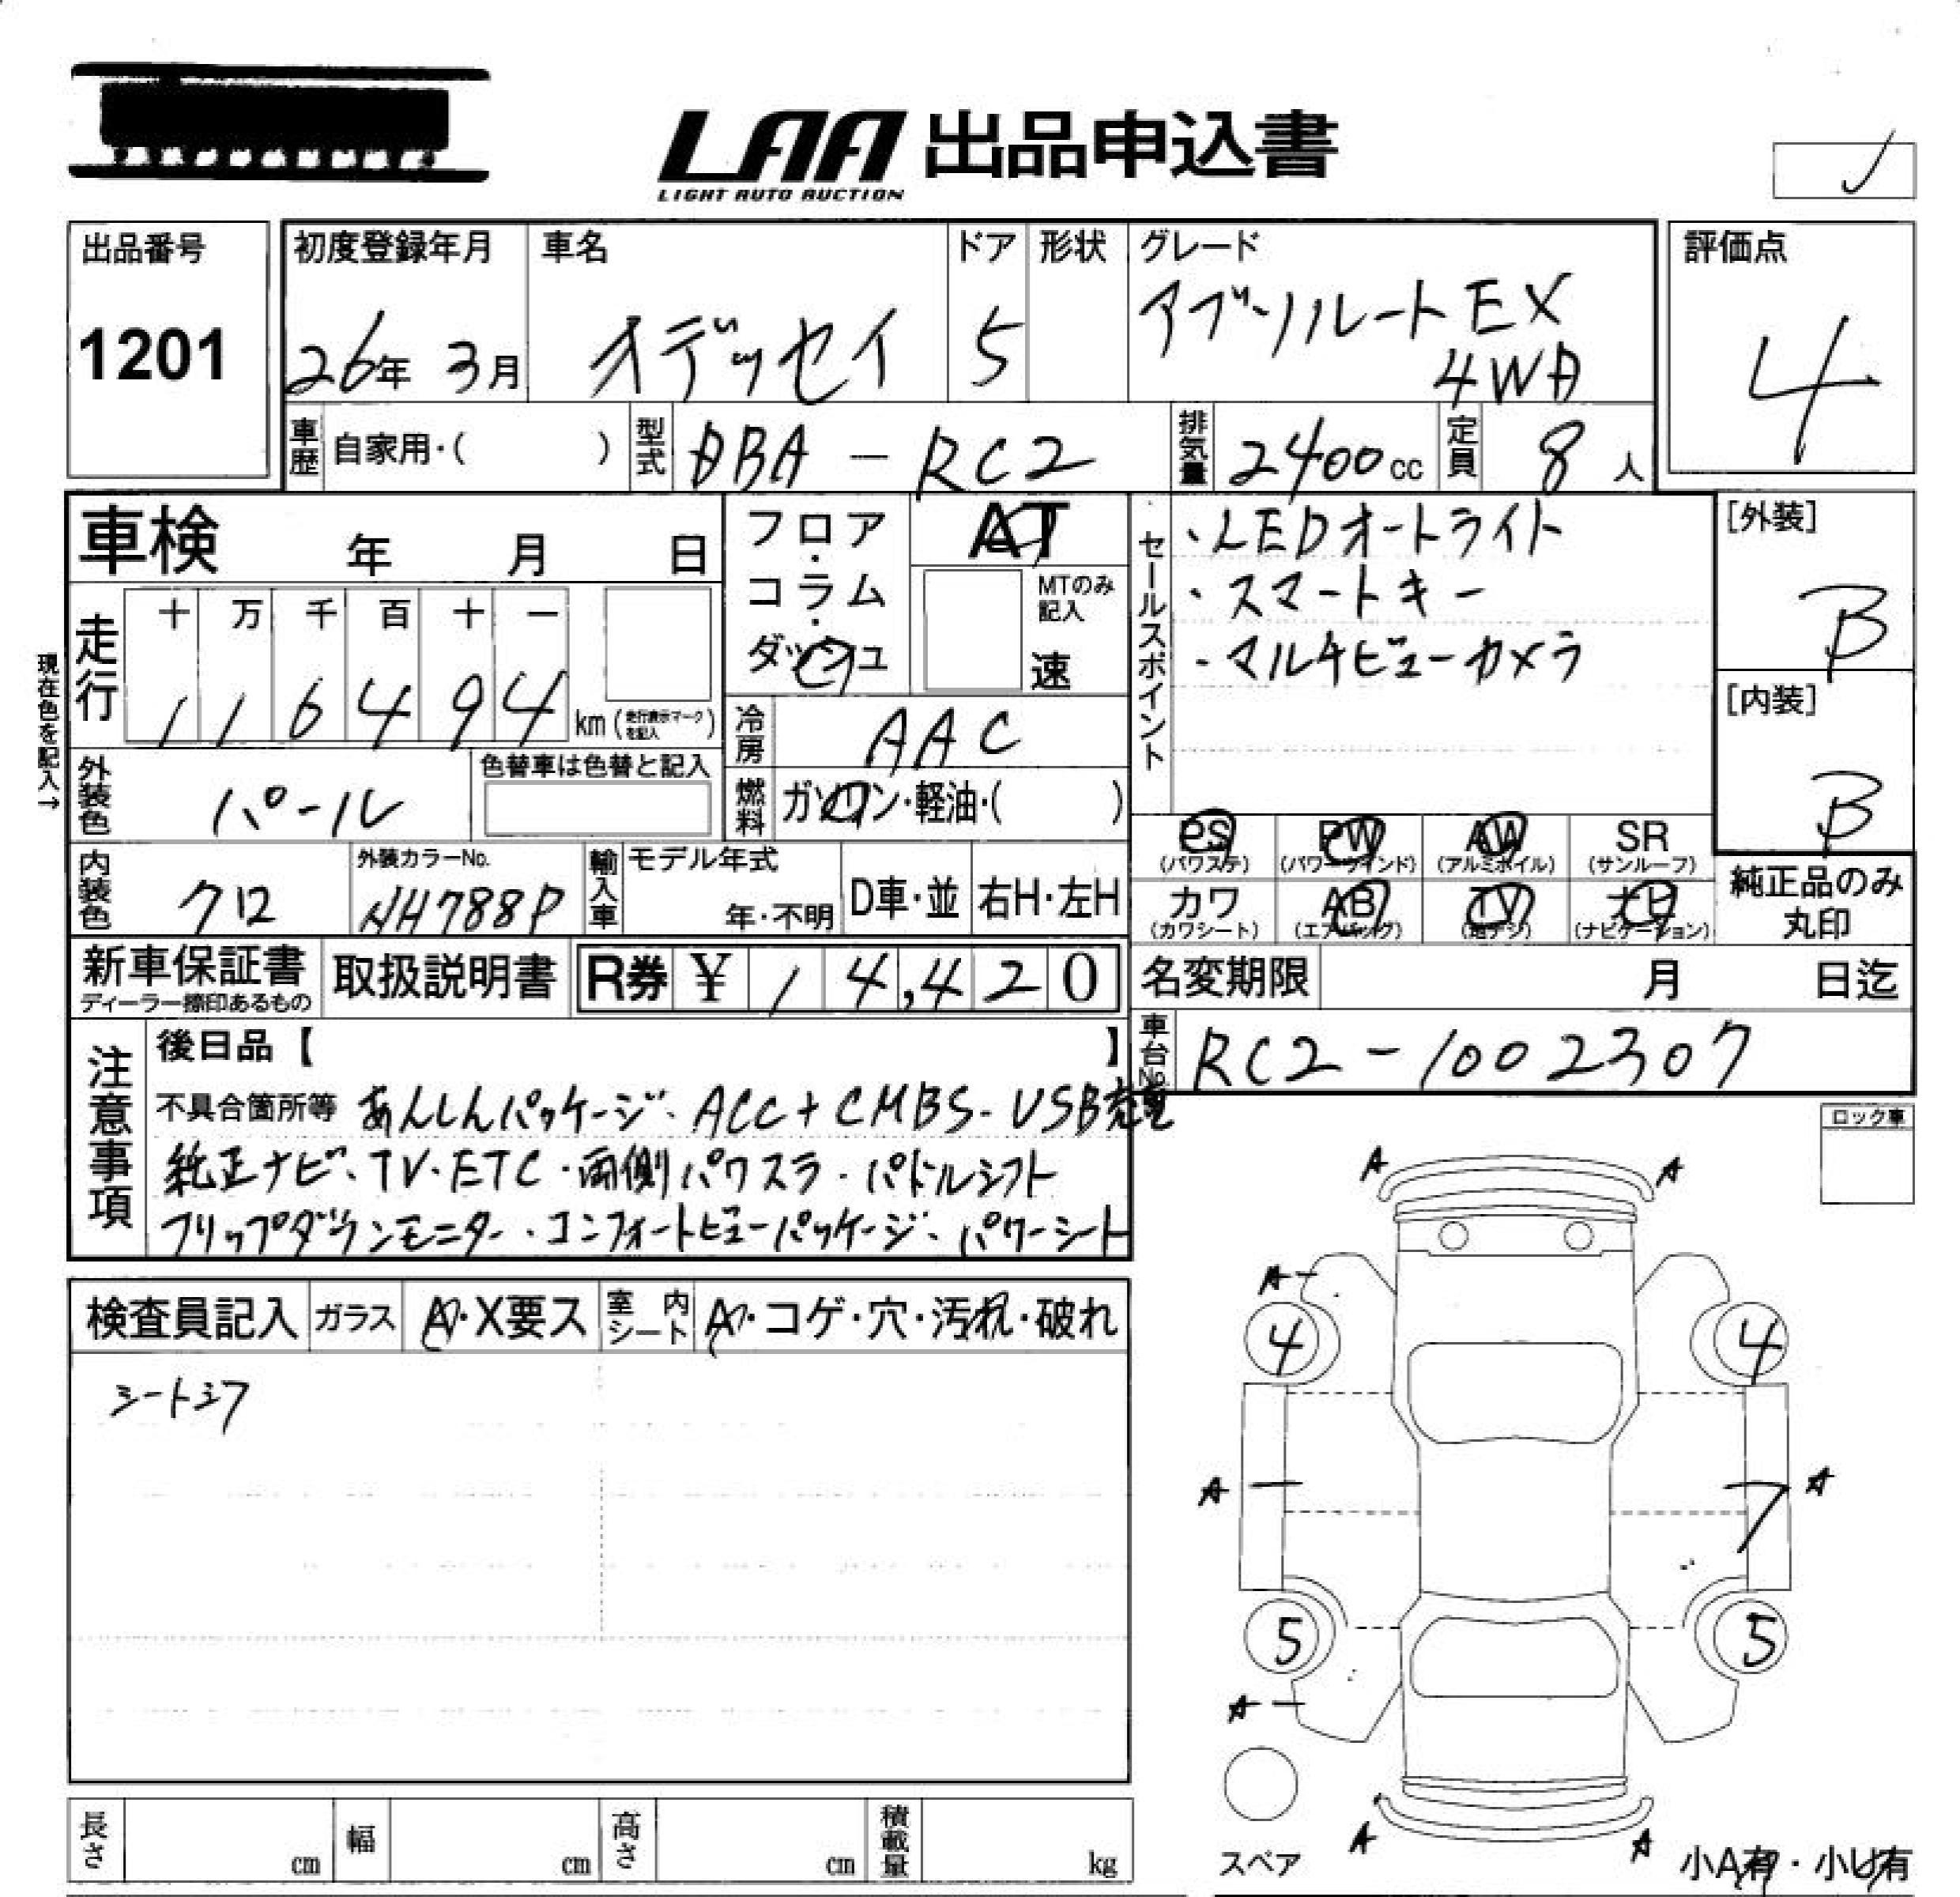 LAA 出品申込書
LIGHT AUTO AUCTION
出品番号
1201
初度登録年月
26年 3月
車名
オデッセイ
ドア
5
形状
グレード
アブソルートEX
4WD
評価点
4
車歴 自家用・( )
型式 DBA-RC2
排気量 2400cc
定員 8人
車検 年 月 日
フロア・コラム・ダッシュ
AT
MTのみ記入
速
セールスポイント
・LEDオートライト
・スマートキー
・マルチビューカメラ
[外装]
B
[内装]
B
現在色を記入→
走行
十 万 千 百 十 一
1 1 6 4 9 4 km (走行表示マークを記入)
冷房 AAC
外装色 パール
色替車は色替と記入
燃料 ガソリン・軽油・( )
PS (パワステ)
PW (パワーウインド)
AW (アルミホイル)
SR (サンルーフ)
カワ (カワシート)
AB (エアバッグ)
TV (地デジ)
ナビ (ナビゲーション)
純正品のみ
丸印
内装色 クロ
外装カラーNo.
NH788P
輸入車
モデル年式
年・不明
D車・並
右H・左H
新車保証書
ディーラー捺印あるもの
取扱説明書
R券 ¥ 1 4,4 2 0
名変期限 月 日迄
車台No. RC2-1002307
注意事項
後日品【 】
不具合箇所等 あんしんパッケージ・ACC+CMBS・USB充電
純正ナビ・TV・ETC・両側パワスラ・パドルシフト
フリップダウンモニター・コンフォートビューパッケージ・パワーシート
ロック車
検査員記入
ガラス A・X要ス
室内シート A・コゲ・穴・汚れ・破れ
シートシワ
A A
A
4 4
A A
7
5 5
A
スペア
A A
小A有・小U有
長さ cm
幅 cm
高さ cm
積載量 kg